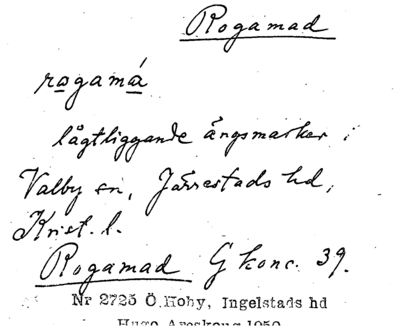 Rogamad
rogamá
lågtliggande ängsmarker i
Valby sn, Järrestads hd,
Krist. l.
Rogamad G konc. 39.
Nr 2725 Ö.Hoby, Ingelstads hd
Hugo Areskoug 1950